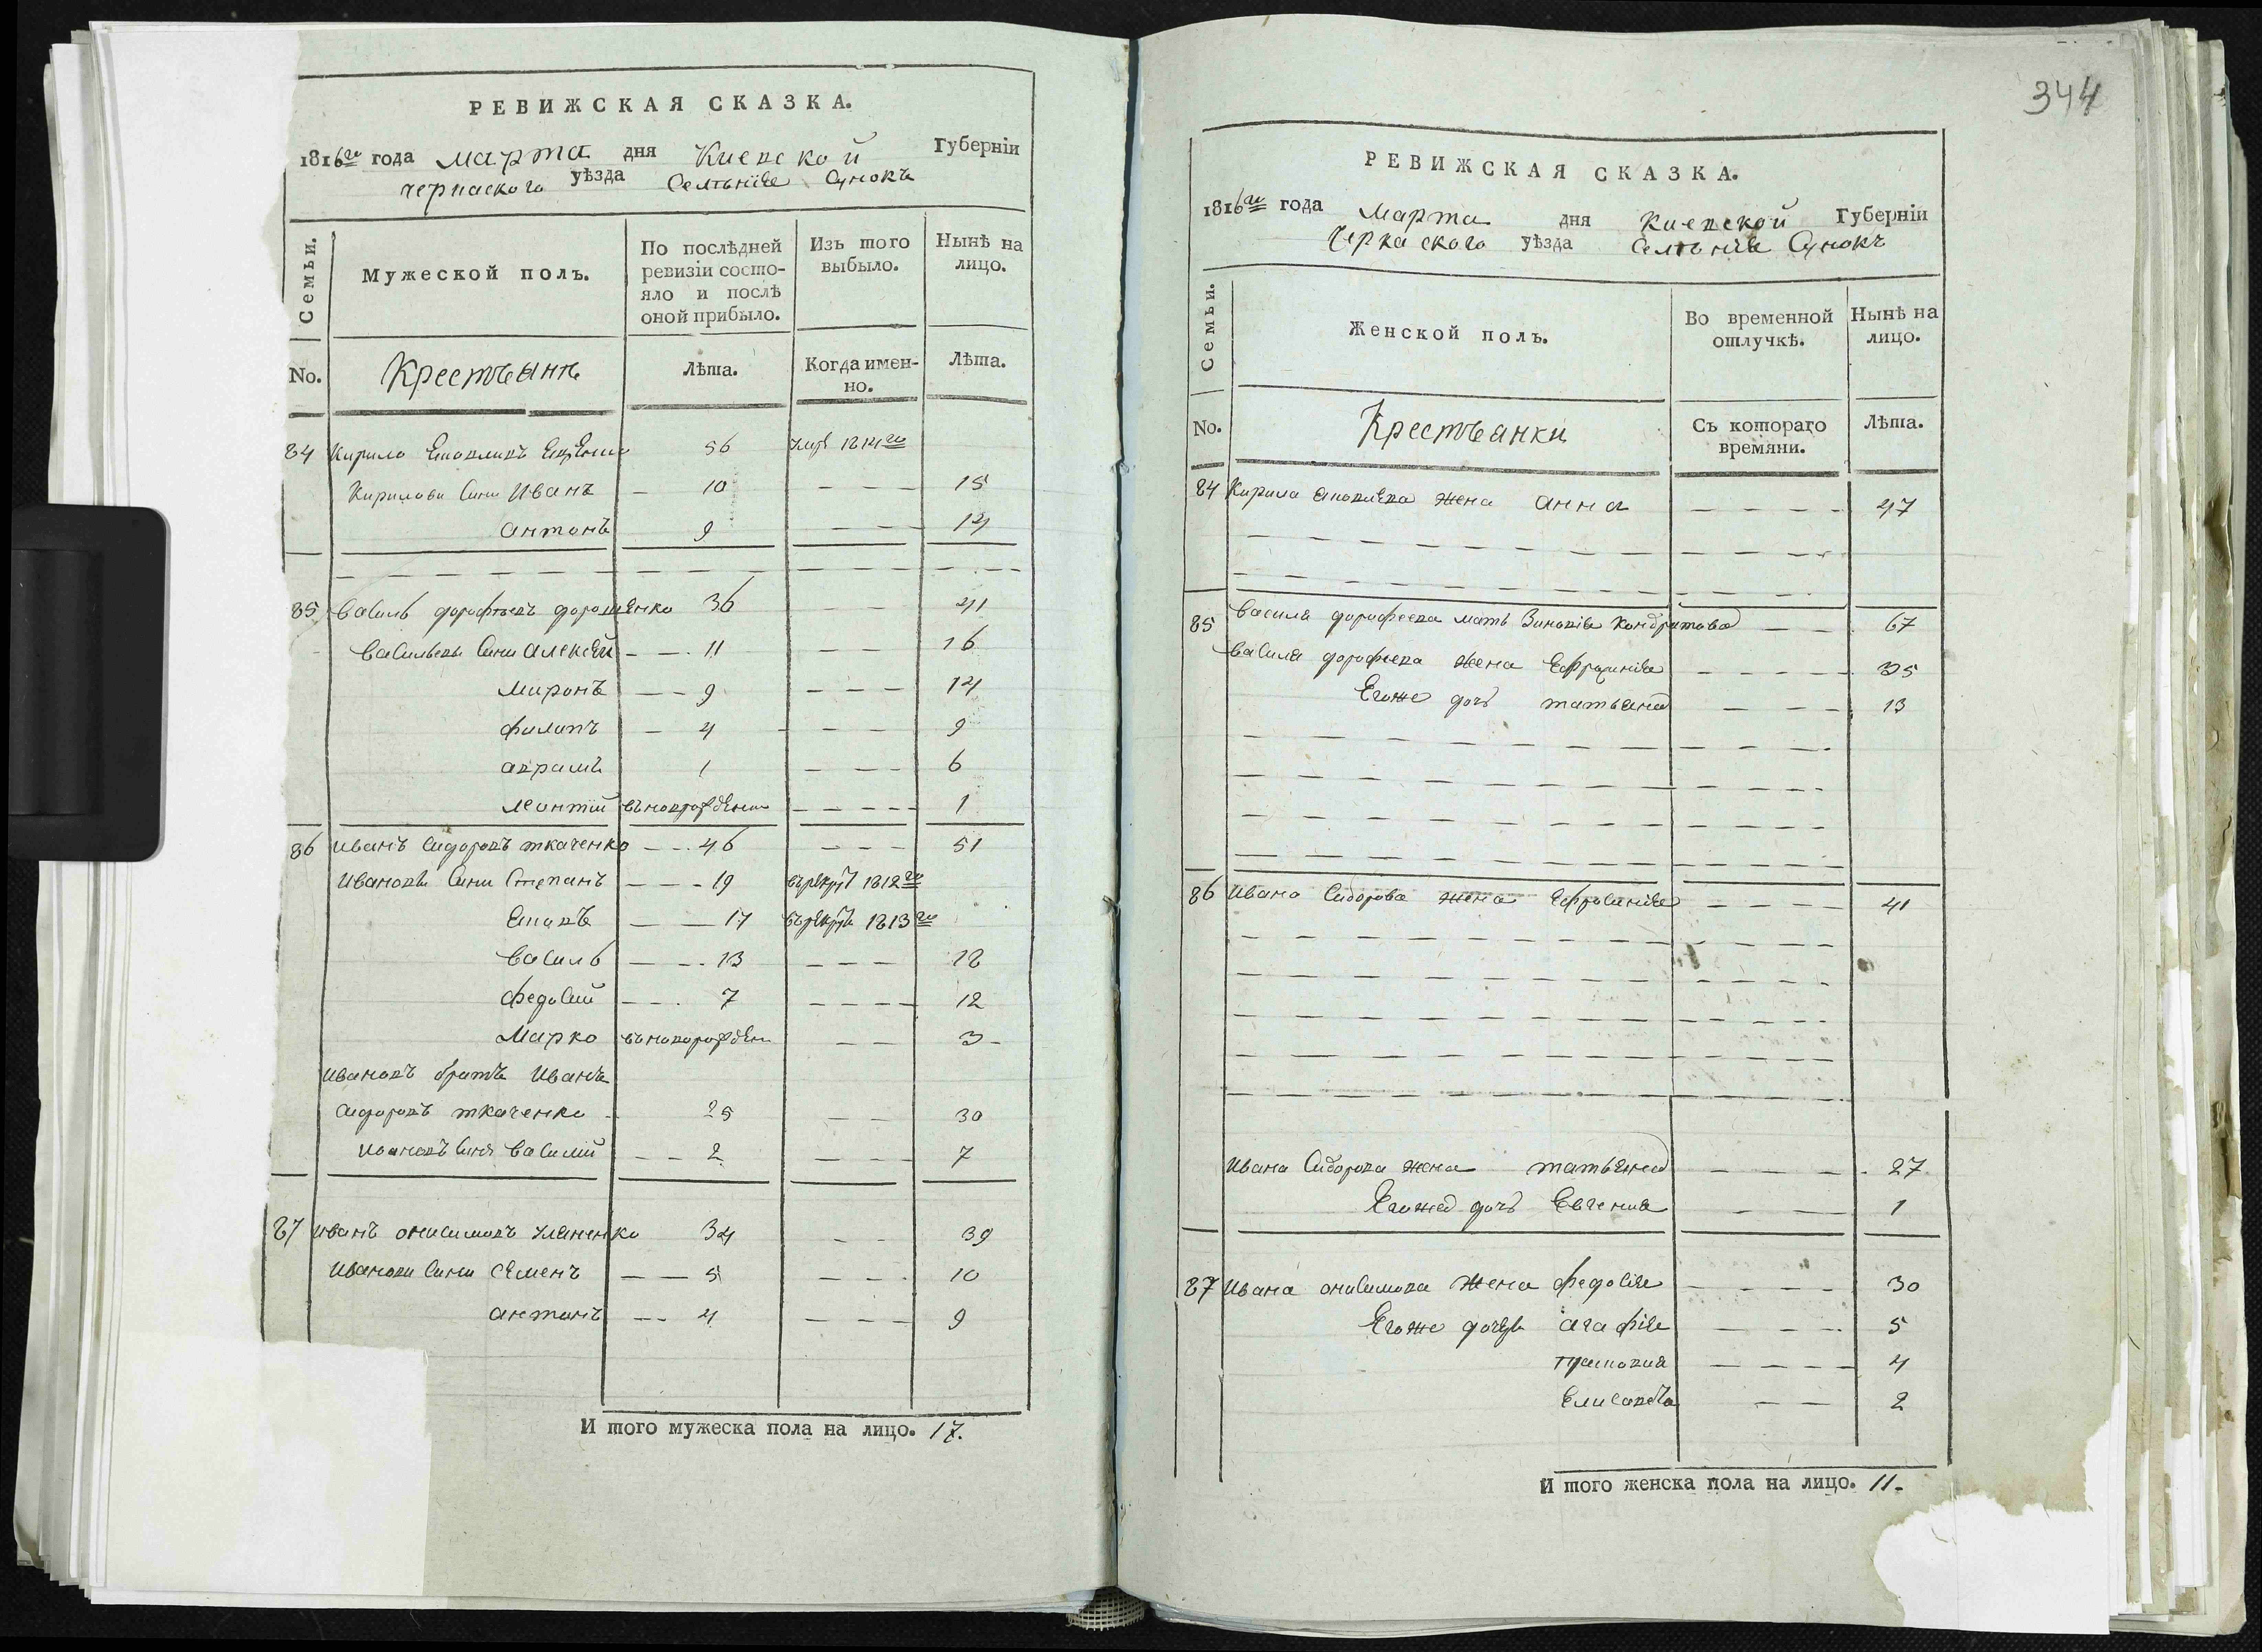 РЕВИЖСКАЯ СКАЗКА.
1816го года марта дня Киевской Губерніи
черкаского уѣзда Селѣніе Сунокъ
Семьи. Мужеской полъ. По послѣдней ревизіи состояло и послѣ оной прибыло. Изъ того выбыло. Нынѣ на лицо.
No. Крестьянъ Лѣта. Когда именно. Лѣта.
84 Кирило 56 умре 1814го
Кириловы Сыны Иванъ 10 15
антонъ 9 14
85 Василь дорофѣевъ дорошенко 36 41
Васильевы Сыны Алексѣй 11 16
миронъ 9 14
филипъ 4 9
аврамъ 1 6
леонтий въноворожденъ 1
86 иванъ Сидоровъ ткаченко 46 51
Ивановы Сыны Степанъ 19 върекрут 1812го
17 върекрут 1813го
Василь 13 18
федосий 7 12
Марко въноворожден 3
ивановъ братъ Иванъ
сидоровъ ткаченко 25 30
ивановъ Сынъ василий 2 7
87 иванъ онисимовъ уланенко 34 39
ивановы Сыны Семенъ 5 10
антонъ 4 9
И того мужеска пола на лицо. 17.
344
РЕВИЖСКАЯ СКАЗКА.
1816го года Марта дня Киевской Губерніи
Черкаского уѣзда Селѣніе Сунокъ
Семьи. Женской полъ. Во временной отлучкѣ. Нынѣ на лицо.
No. Крестьянки Съ котораго времяни. Лѣта.
84 Кирила жена анна 47
85 Василя дорофеева мать Зиновія Кондратова 67
Василя дорофеева жена Ефросинія 35
Егоже дочь татьяна 13
86 Ивана Сидорова жена Ефросинія 41
Ивана Сидорова жена татьяна 27
Егоже дочь Евгения 1
87 Ивана онисимова жена федосія 30
Егоже дочери агафія 5
4
Елисавета 2
И того женска пола на лицо. 11.